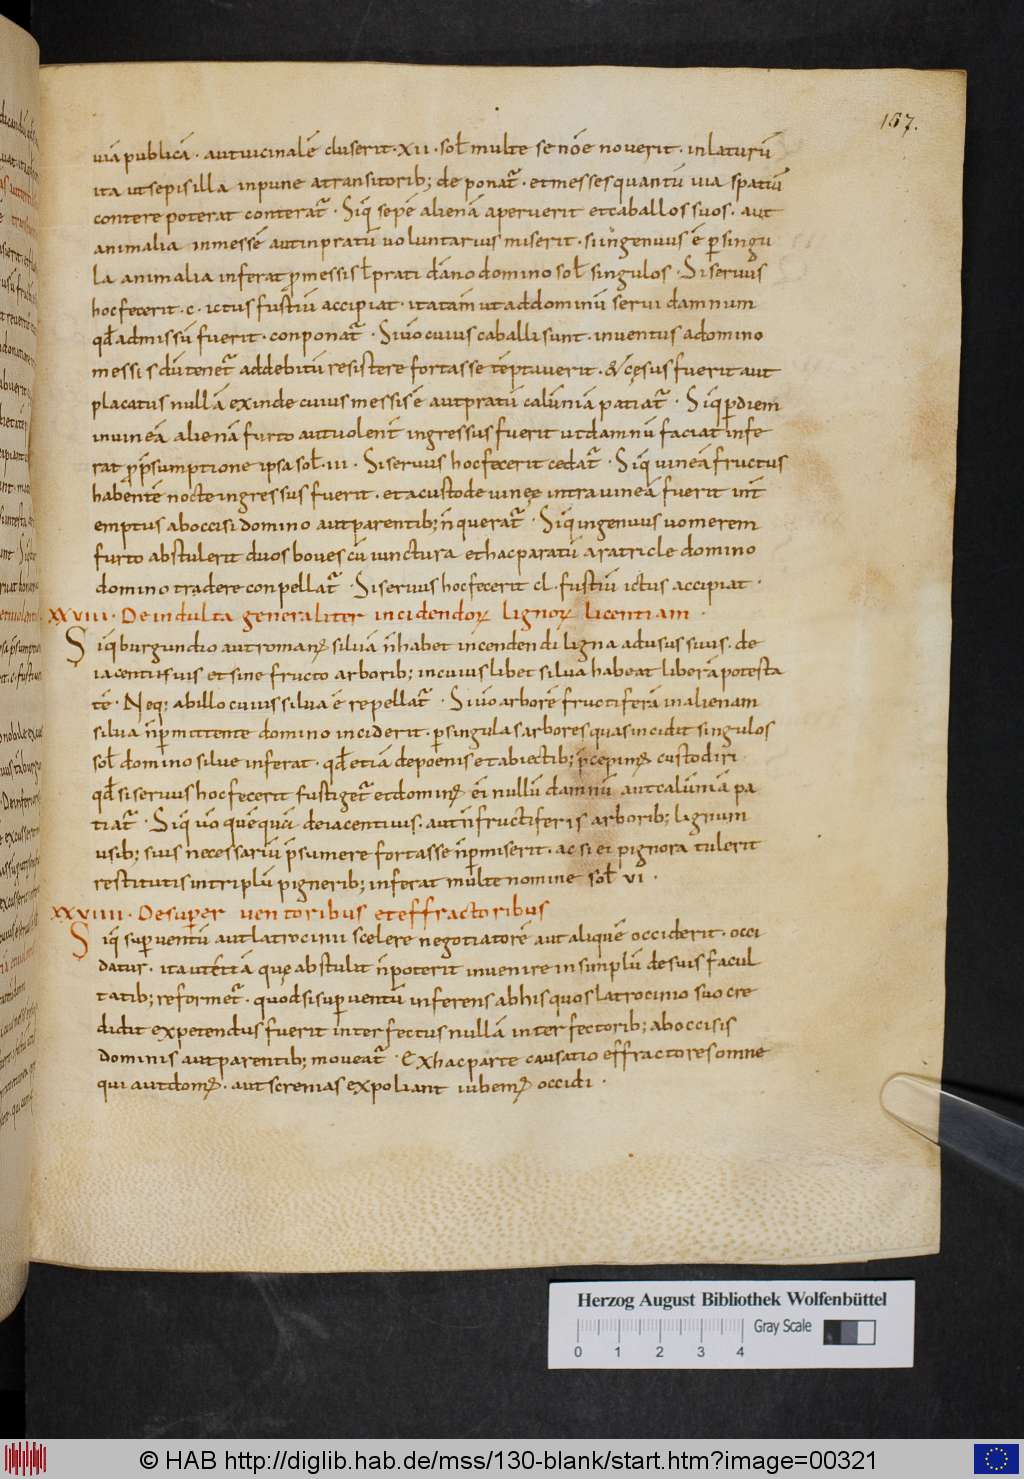 157.
uiā publicā · aut uicinalē cluserit · xii · sol̄ multe se nōe nouerit · inlaturū
ita ut sepis illa inpune a transitorib; deponat̄ · et messes quantū uia spatiū
contere poterat conterat̄ · Siq̄ sepē alienā aperuerit et caballos suos · aut
animalia in messē aut in pratū uoluntarius miserit · si ingenuus ē p̄ singu
la animalia inferat p̄ messis ł prati dāno domino sol̄ singulos · Si seruus
hoc fecerit · c · ictus fustiū accipiat · ita tam̄ ut ad dominū serui damnum
qd̄ admissū fuerit · conponat̄ · Si ūo cuius caballi sunt · inuentus a domino
messis dū tenet̄ ad debitū resistere fortasse tēptuuerit · & cęsus fuerit aut
placatus nullā exinde cuius messis ē aut pratū calūniā patiat̄ · Siq̄ p̄ diem
in uineā alienā furto aut uolent̄ ingressus fuerit ut damnū faciat infe
rat p̄ p̄sumptione ipsa sol̄ · iii · Si seruus hoc fecerit cedat̄ · Siq̄ uineā fructus
habentē nocte ingressus fuerit · et a custode uineę intra uineā fuerit int̄
emptus ab occisi domino aut parentib; n̄ querat̄ · Siq̄ ingenuus uomerem
furto abstulerit duos boues cū iunctura et hac paratū aratri cle domino
domino tradere conpellat̄ · Si seruus hoc fecerit cl · fustiū ictus accipiat ·
xxviii · De indulta generaliter incidendoꝝ lignoꝝ licentiam ·
Siq̄ burgundio aut romanꝰ siluā n̄ habet incendendi ligna ad usus suos · de
iacentiuis et sine fructo arborib; in cuius libet silua habeat liberā potesta
tē · Neq; ab illo cuius silua ē repellat̄ · Si ūo arborē fructiferā in alienam
silua n̄ p̄mittente domino inciderit · p̄ singulas arbores quas incidit singulos
sol̄ domino silue inferat · qd̄ etiā de poenis et abiectib; p̄cepimꝰ custodiri
qd̄ si seruus hoc fecerit fustiget̄ et dominꝰ ei nullū damnū aut calūniā pa
tiat̄ · Siq̄ ūo quēquā de iacentiuus · aut n̄ fructiferis arborib; lignum
usib; suis necessariū p̄sumere fortasse n̄ p̄miserit · ac si ei pignora tulerit
restitutis in triplū pignerib; inferat multe nomine sol̄ vi ·
xxviiii · De superuentoribus et effractoribus
Siq̄ sup̄uentū aut latrocinii scelere negotiatorē aut aliquē occiderit · occi
datur · ita ut et eā quę abstulit n̄ poterit inuenire in simplū de suis facul
tatib; reformet̄ · quod si sup̄uentū inferens ab his quos latrocinio suo cre
didit expetendus fuerit interfectus nullā interfectorib; ab occisis
dominis aut parentib; moueat̄ · Ex hac parte causatio effractores omne
qui aut domꝰ · aut screnias expoliant iubemꝰ occidi ·
Herzog August Bibliothek Wolfenbüttel
Gray Scale
0 1 2 3 4
© HAB http://diglib.hab.de/mss/130-blank/start.htm?image=00321